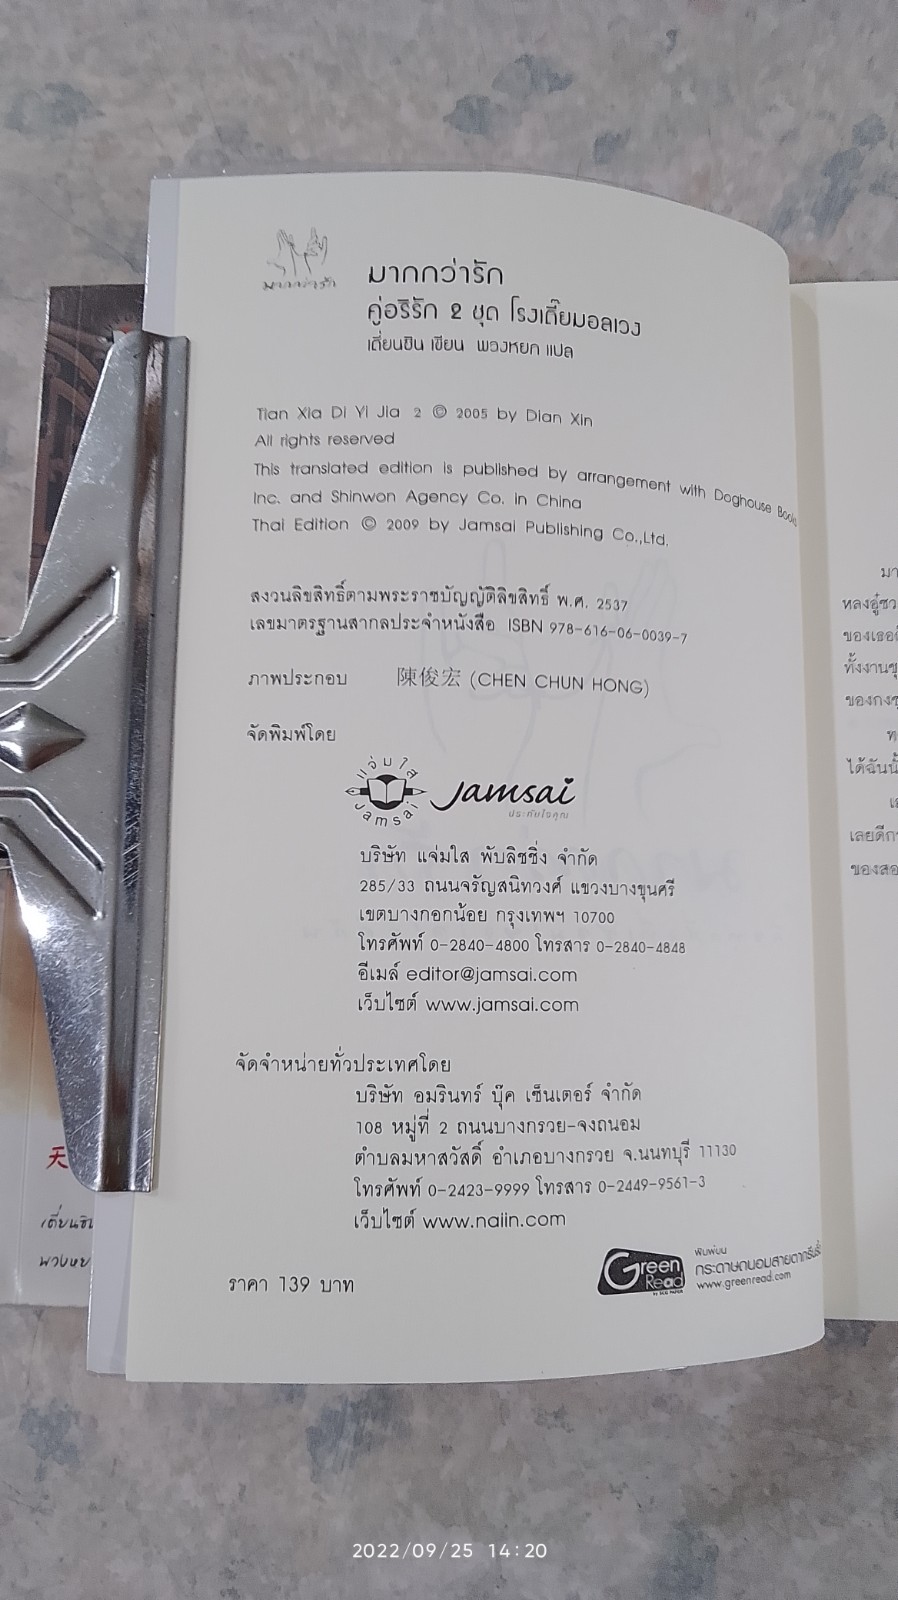 มากกว่ารัก
มากกว่ารัก
คู่อริรัก 2 ชุด โรงเตี๊ยมอลเวง
เตี่ยนซิน เขียน พวงหยก แปล
Tian Xia Di Yi Jia 2 © 2005 by Dian Xin
All rights reserved
This translated edition is published by arrangement with Doghouse Books
Inc. and Shinwon Agency Co. in China
Thai Edition © 2009 by Jamsai Publishing Co.,Ltd.
สงวนลิขสิทธิ์ตามพระราชบัญญัติลิขสิทธิ์ พ.ศ. 2537
เลขมาตรฐานสากลประจำหนังสือ ISBN 978-616-06-0039-7
ภาพประกอบ 陳俊宏 (CHEN CHUN HONG)
จัดพิมพ์โดย
แจ่มใส
Jamsai
Jamsai
ประทับใจคุณ
บริษัท แจ่มใส พับลิชชิ่ง จำกัด
285/33 ถนนจรัญสนิทวงศ์ แขวงบางขุนศรี
เขตบางกอกน้อย กรุงเทพฯ 10700
โทรศัพท์ 0-2840-4800 โทรสาร 0-2840-4848
อีเมล์ editor@jamsai.com
เว็บไซต์ www.jamsai.com
จัดจำหน่ายทั่วประเทศโดย
บริษัท อมรินทร์ บุ๊ค เซ็นเตอร์ จำกัด
108 หมู่ที่ 2 ถนนบางกรวย-จงถนอม
ตำบลมหาสวัสดิ์ อำเภอบางกรวย จ.นนทบุรี 11130
โทรศัพท์ 0-2423-9999 โทรสาร 0-2449-9561-3
เว็บไซต์ www.naiin.com
ราคา 139 บาท
Green Read
พิมพ์บน
กระดาษถนอมสายตากรีนรี้ด
www.greenread.com
มา
หลงอู๋ชว
ของเธอ
ทั้งงานชุ
ของกงชุ
ท
ได้ฉันนั้
เ
เลยดีกว
ของสอ
天
เตี่ยนซิน
พวงหย
2022/09/25 14:20